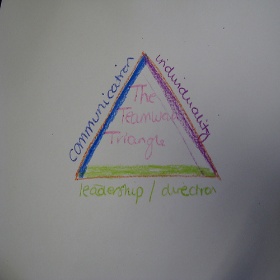 communication
individuality
The
Teamwork
Triangle
leadership / direction